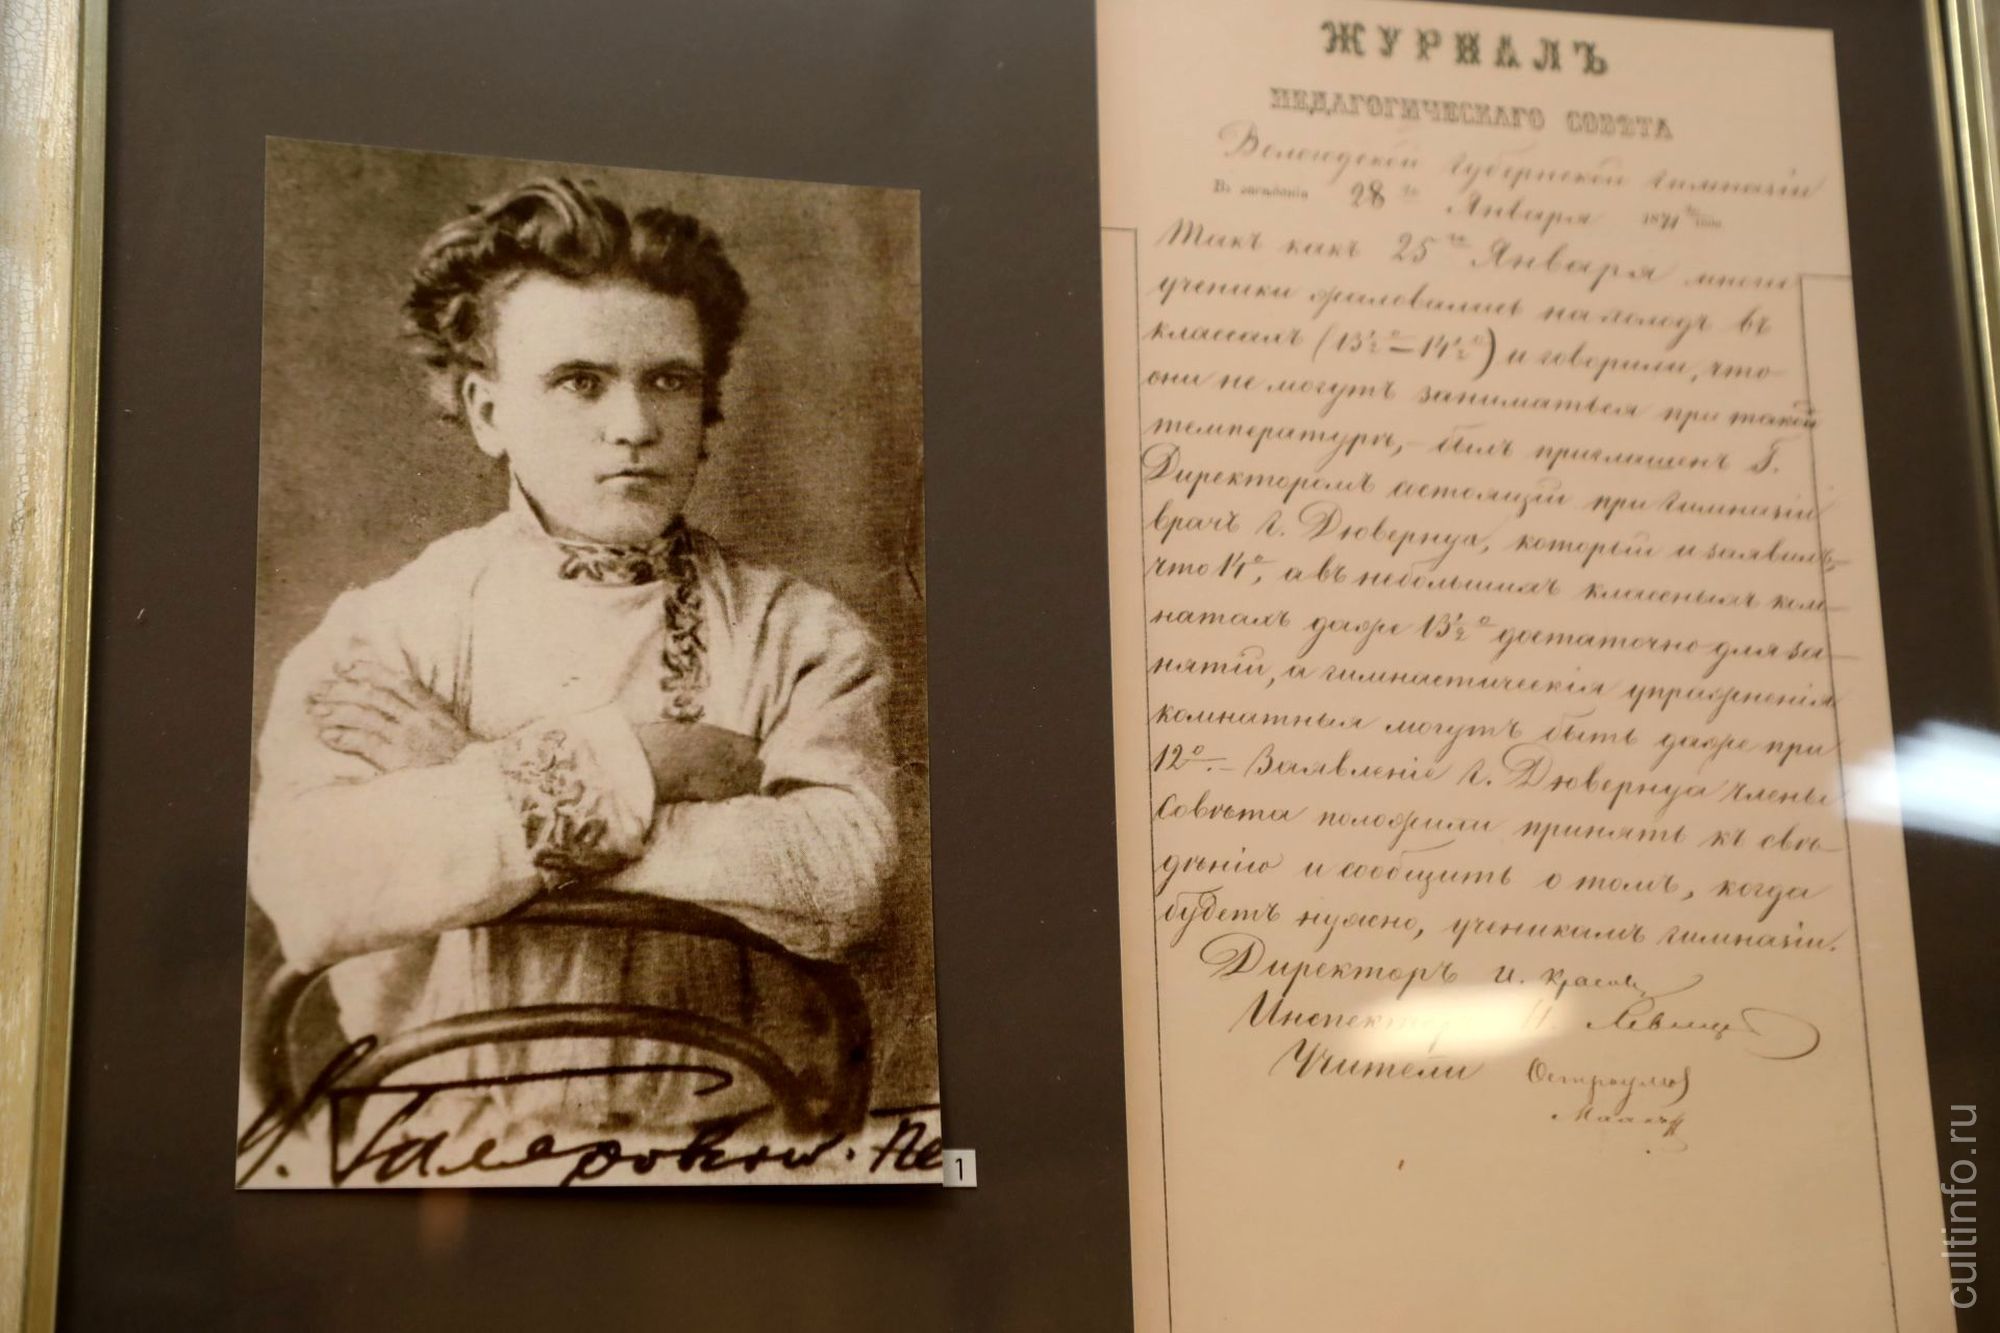 ЖУРНАЛЪ
ПЕДАГОГИЧЕСКАГО СОВѢТА
Вологодской Губернской Гимназіи
Въ засѣданіи 28 го Января 1871
Такъ какъ 25 го Января многіе
ученики жаловались на холодъ въ
классахъ (13½° — 14½°) и говорили, что
они не могутъ заниматься при такой
температурѣ, – былъ приглашенъ Г.
Директоромъ состоящій при Гимназіи
врачъ Г. Дювернуа, который и заявилъ,
что 14°, а въ небольшихъ классныхъ ком-
натахъ даже 13½° достаточно для за-
нятій, а гимнастическія упражненія
комнатныя могутъ быть даже при
12°. – Заявленіе Г. Дювернуа члены
Совѣта положили принять къ свѣ-
дѣнію и сообщить о томъ, когда
будетъ нужно, ученикамъ гимназіи.
Директоръ И. Красов
Инспектор Н. Левиц
Учители Остроумов
В. Гиляровский. Пе
1
cultinfo.ru